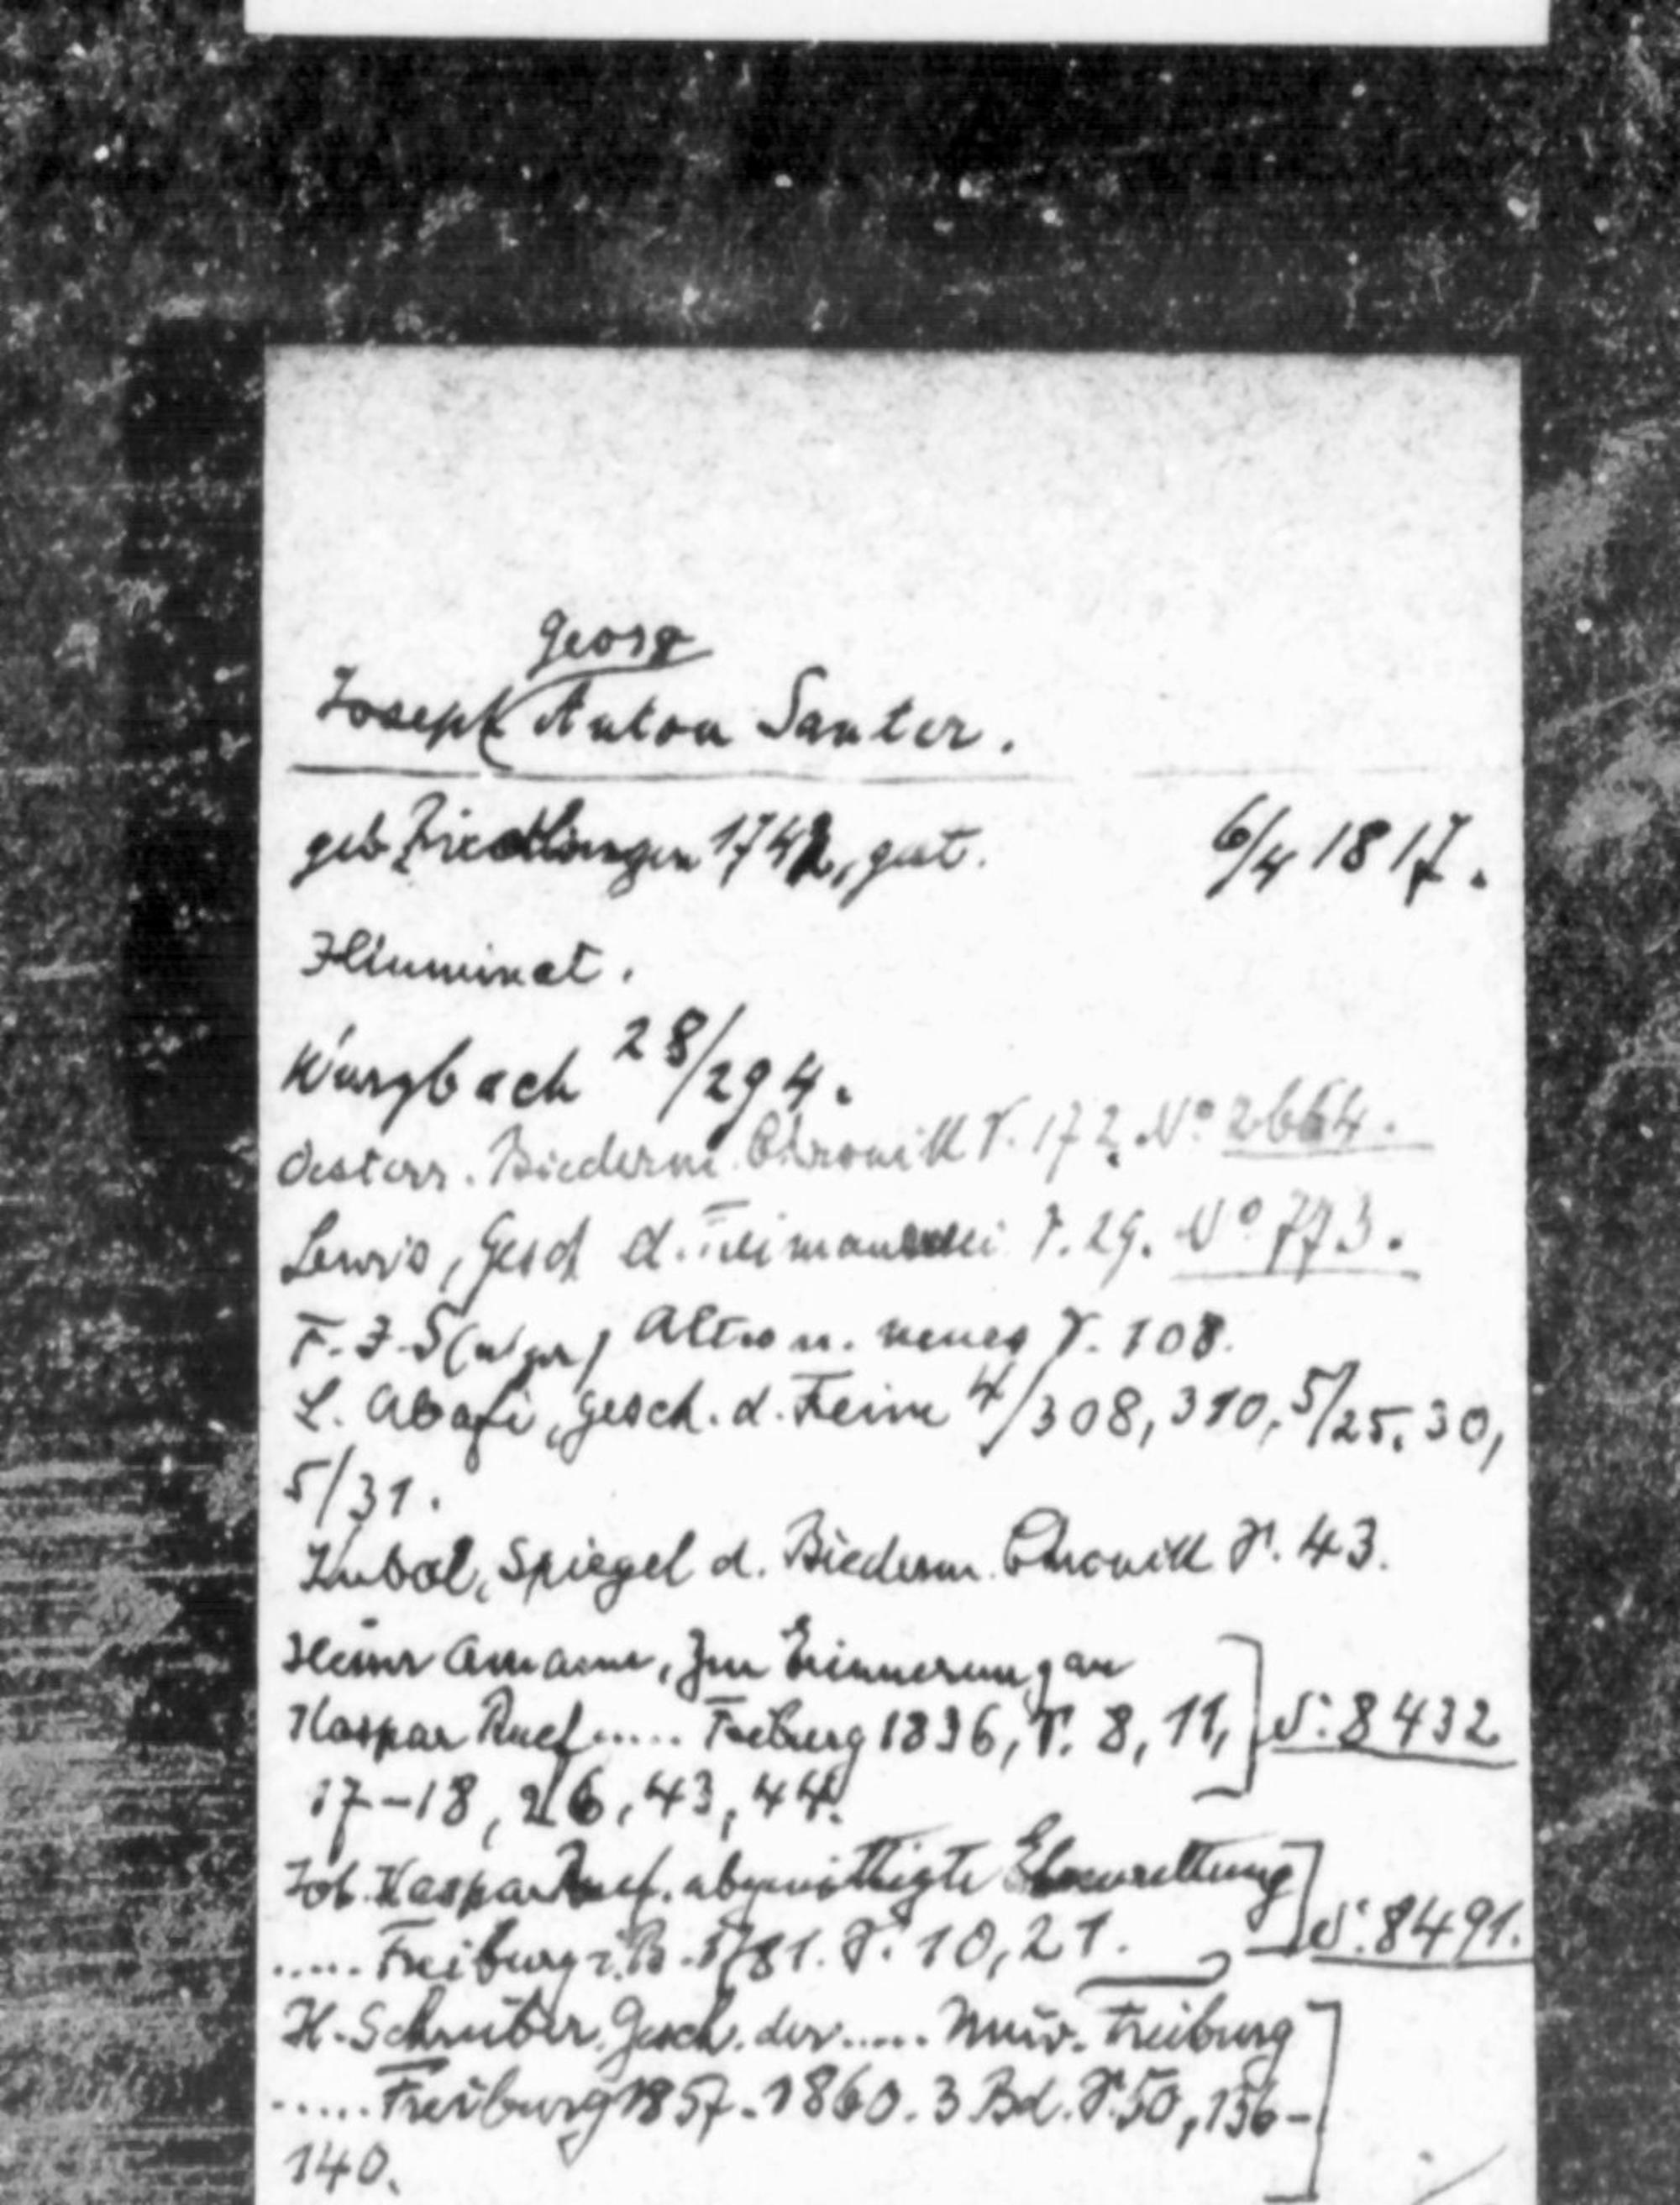 Georg
Joseph Anton Sauter.
geb. Riedlingen 1742, gest. 6/4 1817.
Illuminat.
Wurzbach 28/294.
Oesterr. Biederm. Chronik S. 172. No 2664.
Lewis, Gesch d. Freimaurerei S. 29. No 773.
F. J. S( Altes u. neues S. 108.
L. Abafi, Gesch. d. Freim 4/308, 310, 5/25, 30,
5/31.
Spiegel d. Biederm. Chronik S. 43.
Heinr Amann, Zur Erinnerung an
Kaspar Ruef ..... Freiburg 1836, S. 8, 11,
17-18, 26, 43, 44.
N: 8432
Joh. Kaspar Ruef, abgenöthigte Ehrenrettung
..... Freiburg i. B. 1781. S. 10, 21.
N: 8491.
H. Schreiber, Gesch. der ..... Univ. Freiburg
..... Freiburg 1857-1860. 3 Bd. S. 50, 136-
140.